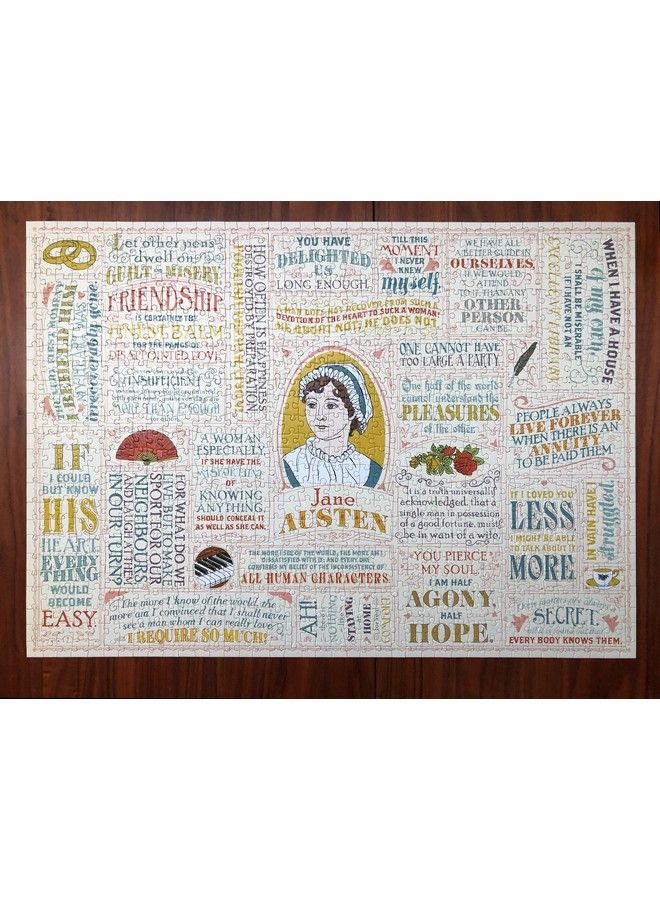 Let other pens
dwell on
GUILT AND MISERY.
FRIENDSHIP
IS CERTAINLY THE
FINEST BALM
FOR THE PANGS OF
DISAPPOINTED LOVE.
HOW OFTEN IS HAPPINESS
DESTROYED BY PREPARATION
YOU HAVE
DELIGHTED
US
LONG ENOUGH.
TILL THIS
MOMENT
I NEVER
KNEW
myself.
WE HAVE ALL
A BETTER GUIDE IN
OURSELVES,
IF WE WOULD
ATTEND
TO IT, THAN ANY
OTHER
PERSON
CAN BE.
WHEN I HAVE A HOUSE
of my own,
I SHALL BE MISERABLE
IF I HAVE NOT AN
EXCELLENT LIBRARY
I BEHELD HIM
MY HEART WAS
irrecoverably gone.
A MAN DOES NOT RECOVER FROM SUCH A
DEVOTION OF THE HEART TO SUCH A WOMAN!
HE OUGHT NOT; HE DOES NOT.
ONE CANNOT HAVE
TOO LARGE A PARTY.
INSUFFICIENT
MORE THAN ENOUGH
One half of the world
cannot understand the
PLEASURES
of the other.
PEOPLE ALWAYS
LIVE FOREVER
WHEN THERE IS AN
ANNUITY
TO BE PAID THEM
IF
I COULD
BUT KNOW
HIS
HEART,
EVERY
THING
WOULD
BECOME
EASY.
FOR WHAT DO WE
LIVE, BUT TO MAKE
SPORT FOR OUR
NEIGHBOURS
AND LAUGH AT THEM
IN OUR TURN?
A WOMAN
ESPECIALLY,
IF SHE HAVE THE
MISFORTUNE
OF
KNOWING
ANYTHING,
SHOULD CONCEAL IT
AS WELL AS SHE CAN.
Jane
AUSTEN
It is a truth universally
acknowledged, that a
single man in possession
of a good fortune, must
be in want of a wife.
IF I LOVED YOU
LESS
I MIGHT BE ABLE
TO TALK ABOUT IT
MORE
IN VAIN HAVE I
struggled
THE MORE I SEE OF THE WORLD, THE MORE AM I
DISSATISFIED WITH IT; AND EVERY DAY
CONFIRMS MY BELIEF OF THE INCONSISTENCY OF
ALL HUMAN CHARACTERS
YOU PIERCE
MY SOUL.
I AM HALF
AGONY,
HALF
HOPE.
The more I know of the world, the
more am I convinced that I shall never
see a man whom I can really love.
I REQUIRE SO MUCH!
AH!
NOTHING
STAYING
HOME
SECRET.
EVERY BODY KNOWS THEM.